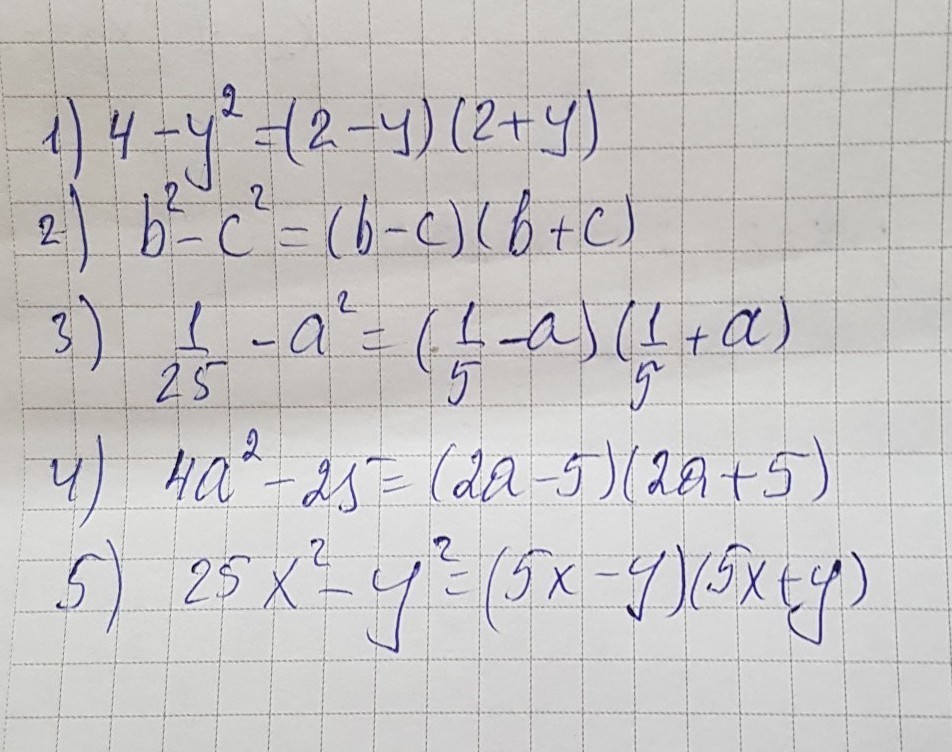 1) 4 - y² = (2 - y)(2 + y)
2) b² - c² = (b - c)(b + c)
3) 1/25 - a² = (1/5 - a)(1/5 + a)
4) 4a² - 25 = (2a - 5)(2a + 5)
5) 25x² - y² = (5x - y)(5x + y)